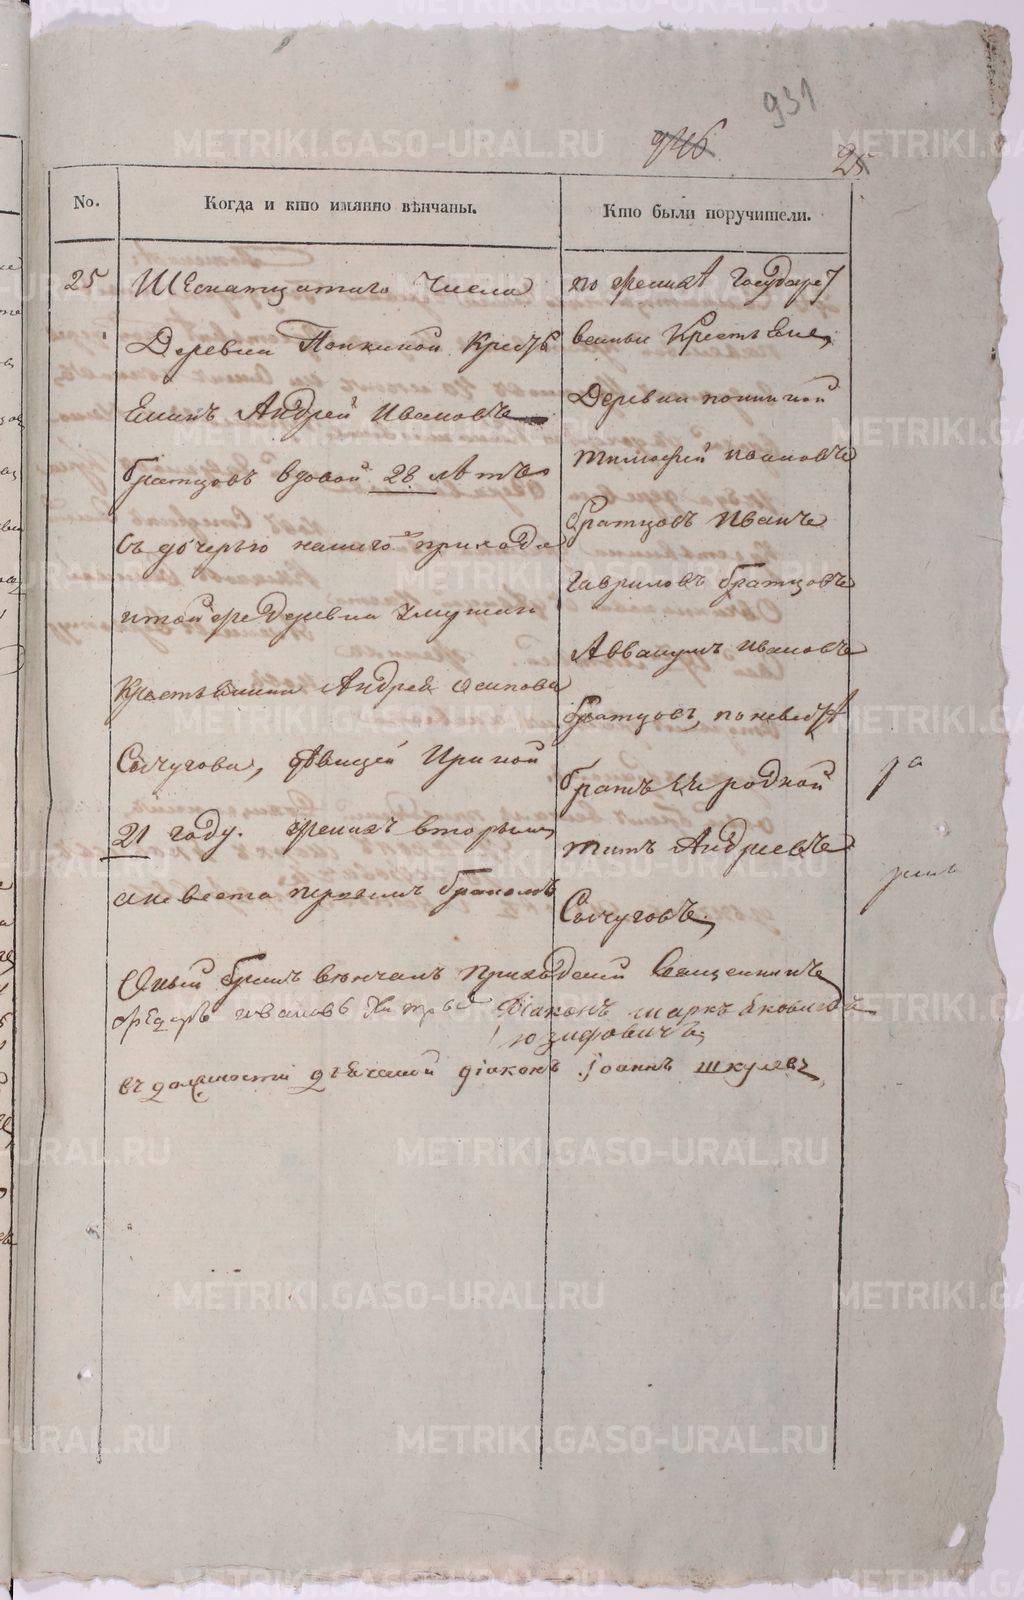 931
946
25
No.
Когда и кто имянно вѣнчаны.
Кто были поручители.
25
Шеснатцатаго Числа
Деревни Попкиной Кресть
Енинъ Андрей Ивановъ
братцовъ вдовой 28 лѣтъ
Съ дочерью нашего прихода
деревни
Крестьянина Андрея осипова
Сычугова, дѣвицей Ириной
21 году. женихъ вторымъ
аневеста первымъ бракомъ
по женихѣ Государст
венныи Крестьяне,
Деревни попкиной
тимофей ивановъ
братцовъ Иванъ
гавриловъ братцовъ
Аввакумъ ивановъ
братцовъ, поневестѣ
братъ Ея родной
титъ Андреевъ
Сычуговъ,
Оный бракъ вѣнчалъ приходской Священникъ
ивановъ Діаконъ маркъ
въ должности діаконъ іоаннъ шкуляевъ
METRIKI.GASO-URAL.RU